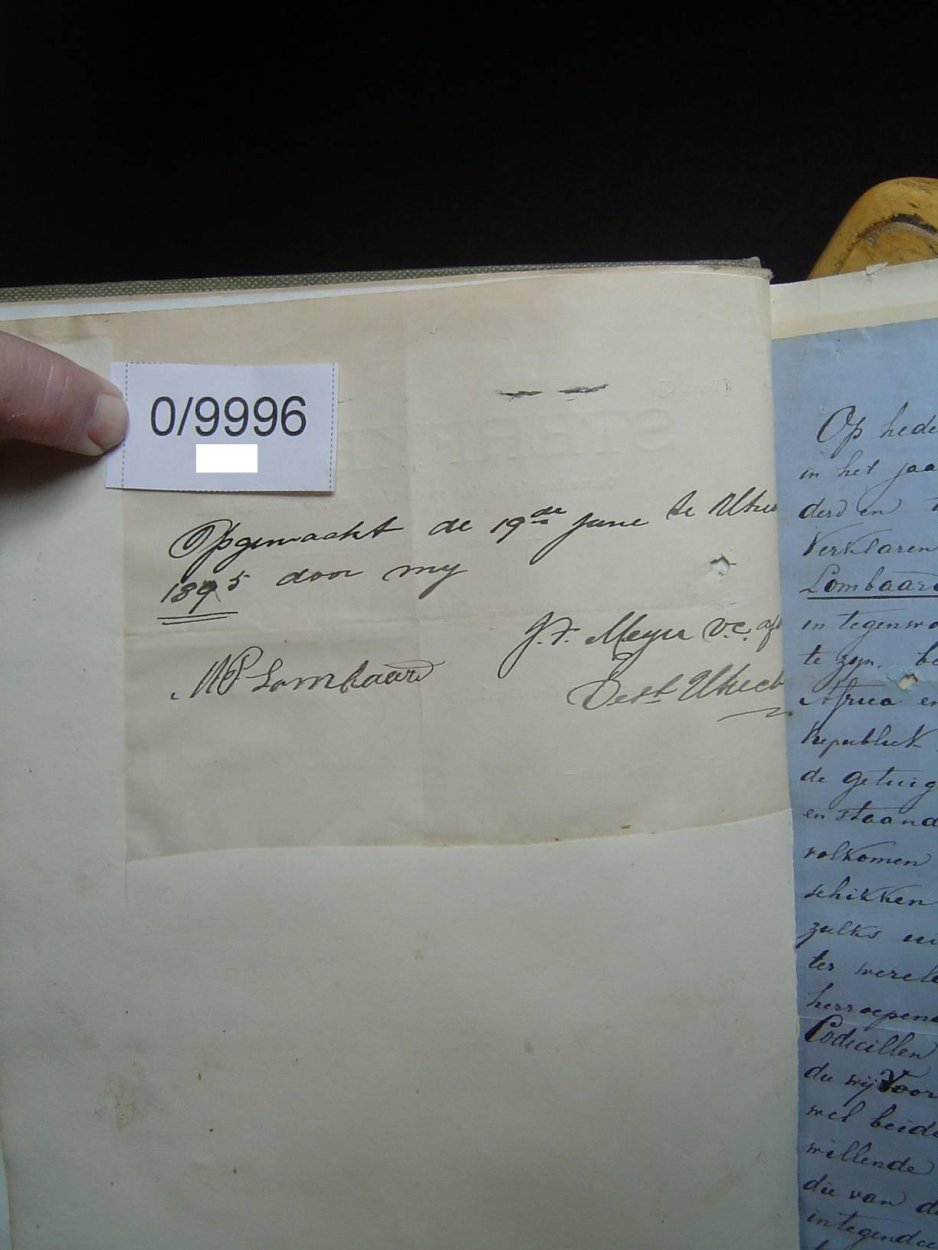 0/9996
Opgemaakt de 19de June te Utrec
1895 door my
J. F. Meyer v.c. afl
MP Lombaard
Dest Utrech
Op hede
in het jaa
derd en
Verklaren
Lombaard
in tegenwo
te zyn, be
Africa en
Republiek
de getuig
en staand
volkomen
schikken
zulks ui
ter werel
herroepend
Codicillen
die wij Voor
wel beide
willende
die van de
integendee